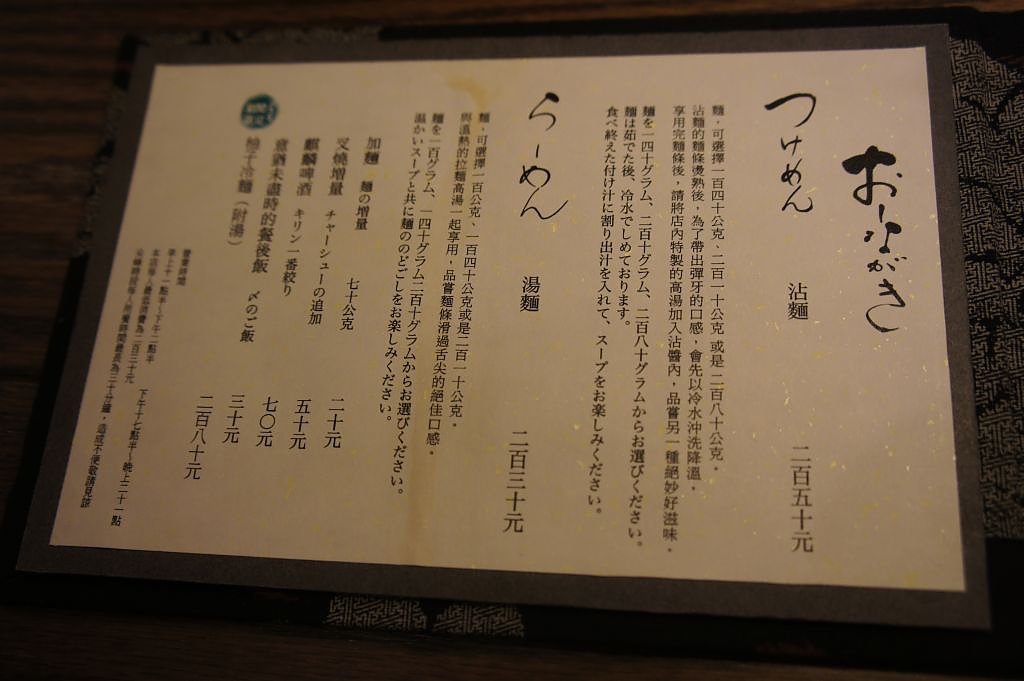 おしながき
つけめん 沾麵 二百五十元
麵,可選擇一百四十公克、二百一十公克 或是 二百八十公克。
沾麵的麵條燙熟後,為了帶出彈牙的口感,會先以冷水沖洗降溫,
享用完麵條後,請將店內特製的高湯加入沾醬內,品嘗另一種絕妙好滋味。
麺を一四十グラム、二百十グラム、二百八十グラムからお選びください。
麺は茹でた後、冷水でしめております。
食べ終えた付け汁に割り出汁を入れて、スープをお楽しみください。
らーめん 湯麵 二百三十元
麵,可選擇一百公克、一百四十公克或是二百一十公克。
與溫熱的拉麵高湯一起享用,品嘗麵條滑過舌尖的絕佳口感。
麺を一百グラム、一四十グラム二百十グラムからお選びください。
温かいスープと共に麺ののどごしをお楽しみください。
加麵 麺の増量 七十公克 二十元
叉燒增量 チャーシューの追加 五十元
麒麟啤酒 キリン一番絞り 七〇元
意猶未盡時的餐後飯 〆のご飯 三十元
柚子冷麵(附湯) 二百八十元
營業時間
早上十一點半~下午二點半 下午十七點半~晚上二十一點
本店每人最低消費為二百三十元
尖峰時段每人用餐時間最長為三十分鐘,造成不便敬請見諒